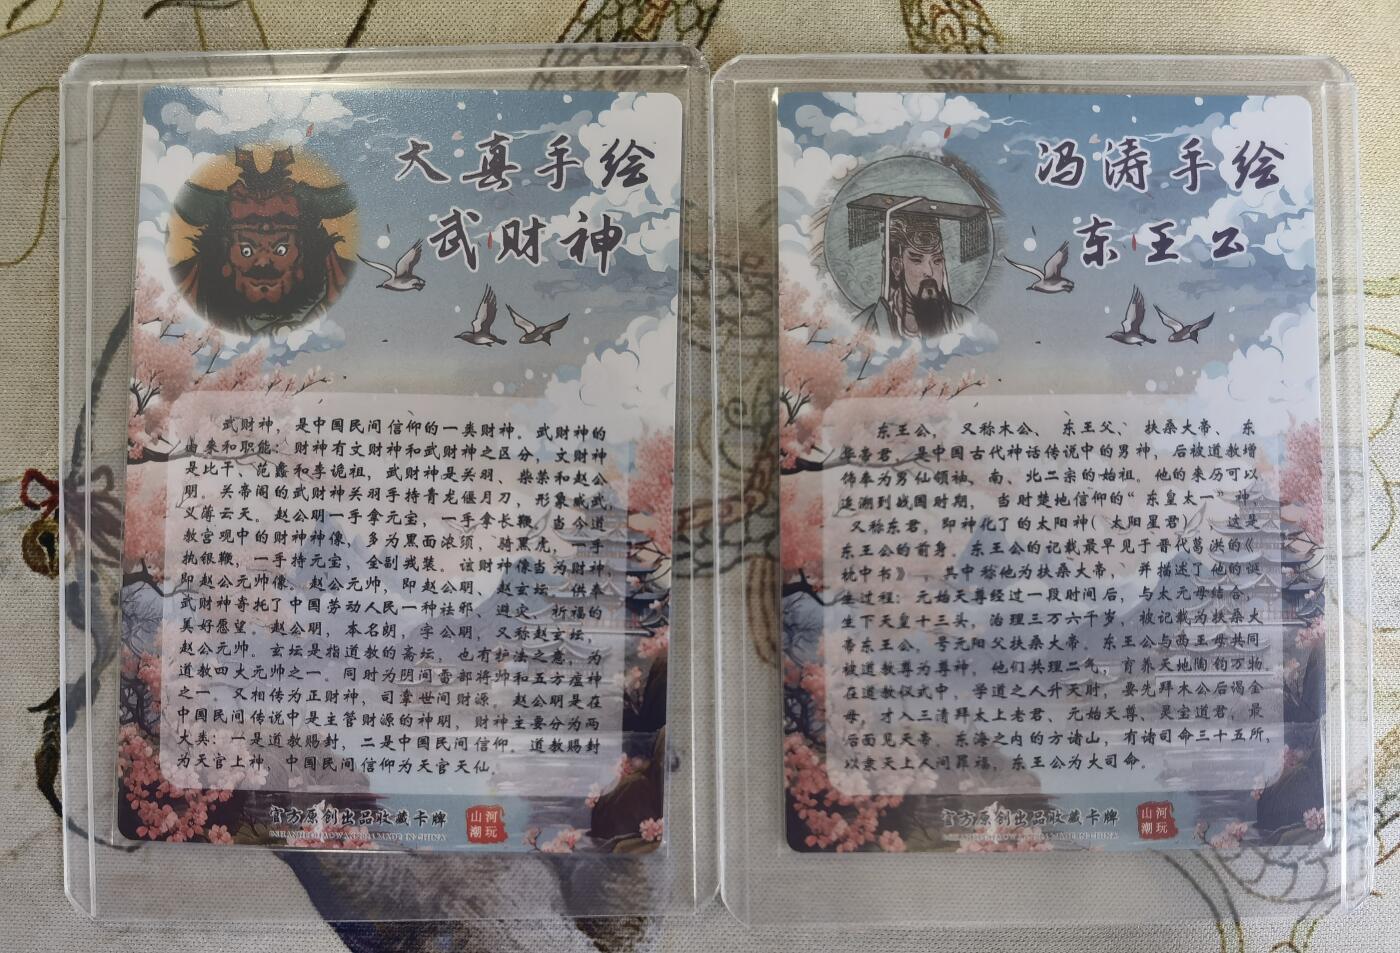 大真手绘
武财神
武财神，是中国民间信仰的一类财神。武财神的
由来和职能：财神有文财神和武财神之区分，文财神
是比干、范蠡和李诡祖，武财神是关羽、柴荣和赵公
明。关帝阁的武财神关羽手持青龙偃月刀，形象威武，
义薄云天。赵公明一手拿元宝，一手拿长鞭，当今道
教宫观中的财神神像，多为黑面浓须，骑黑虎，一手
执银鞭，一手持元宝，全副戎装。该财神像当为财神，
即赵公元帅像。赵公元帅，即赵公明、赵玄坛，供奉
武财神寄托了中国劳动人民一种祛邪、避灾、祈福的
美好愿望。赵公明，本名朗，字公明，又称赵玄坛，
赵公元帅。玄坛是指道教的斋坛，也有护法之意，为
道教四大元帅之一。同时为阴间雷部将帅和五方瘟神
之一，又相传为正财神，司掌世间财源。赵公明是在
中国民间传说中是主管财源的神明，财神主要分为两
大类：一是道教赐封，二是中国民间信仰。道教赐封
为天官上神，中国民间信仰为天官天仙。
官方原创出品收藏卡牌
山河
潮玩
冯涛手绘
东王公
东王公，又称木公、东王父、扶桑大帝、东
华帝君，是中国古代神话传说中的男神，后被道教增
饰奉为男仙领袖，南、北二宗的始祖。他的来历可以
追溯到战国时期，当时楚地信仰的“东皇太一”神，
又称东君，即神化了的太阳神（太阳星君），这是
东王公的前身。东王公的记载最早见于晋代葛洪的《
枕中书》，其中称他为扶桑大帝，并描述了他的诞
生过程：元始天尊经过一段时间后，与太元母结合，
生下天皇十三头，治理三万六千岁，被记载为扶桑大
帝东王公，号元阳父扶桑大帝。东王公与西王母共同
被道教尊为尊神，他们共理二气，育养天地陶钧万物。
在道教仪式中，学道之人升天时，要先拜木公后谒金
母，才入三清拜太上老君、元始天尊、灵宝道君，最
后面见天帝。东海之内的方诸山，有诸司命三十五所，
以隶天上人间罪福，东王公为大司命。
官方原创出品收藏卡牌
山河
潮玩